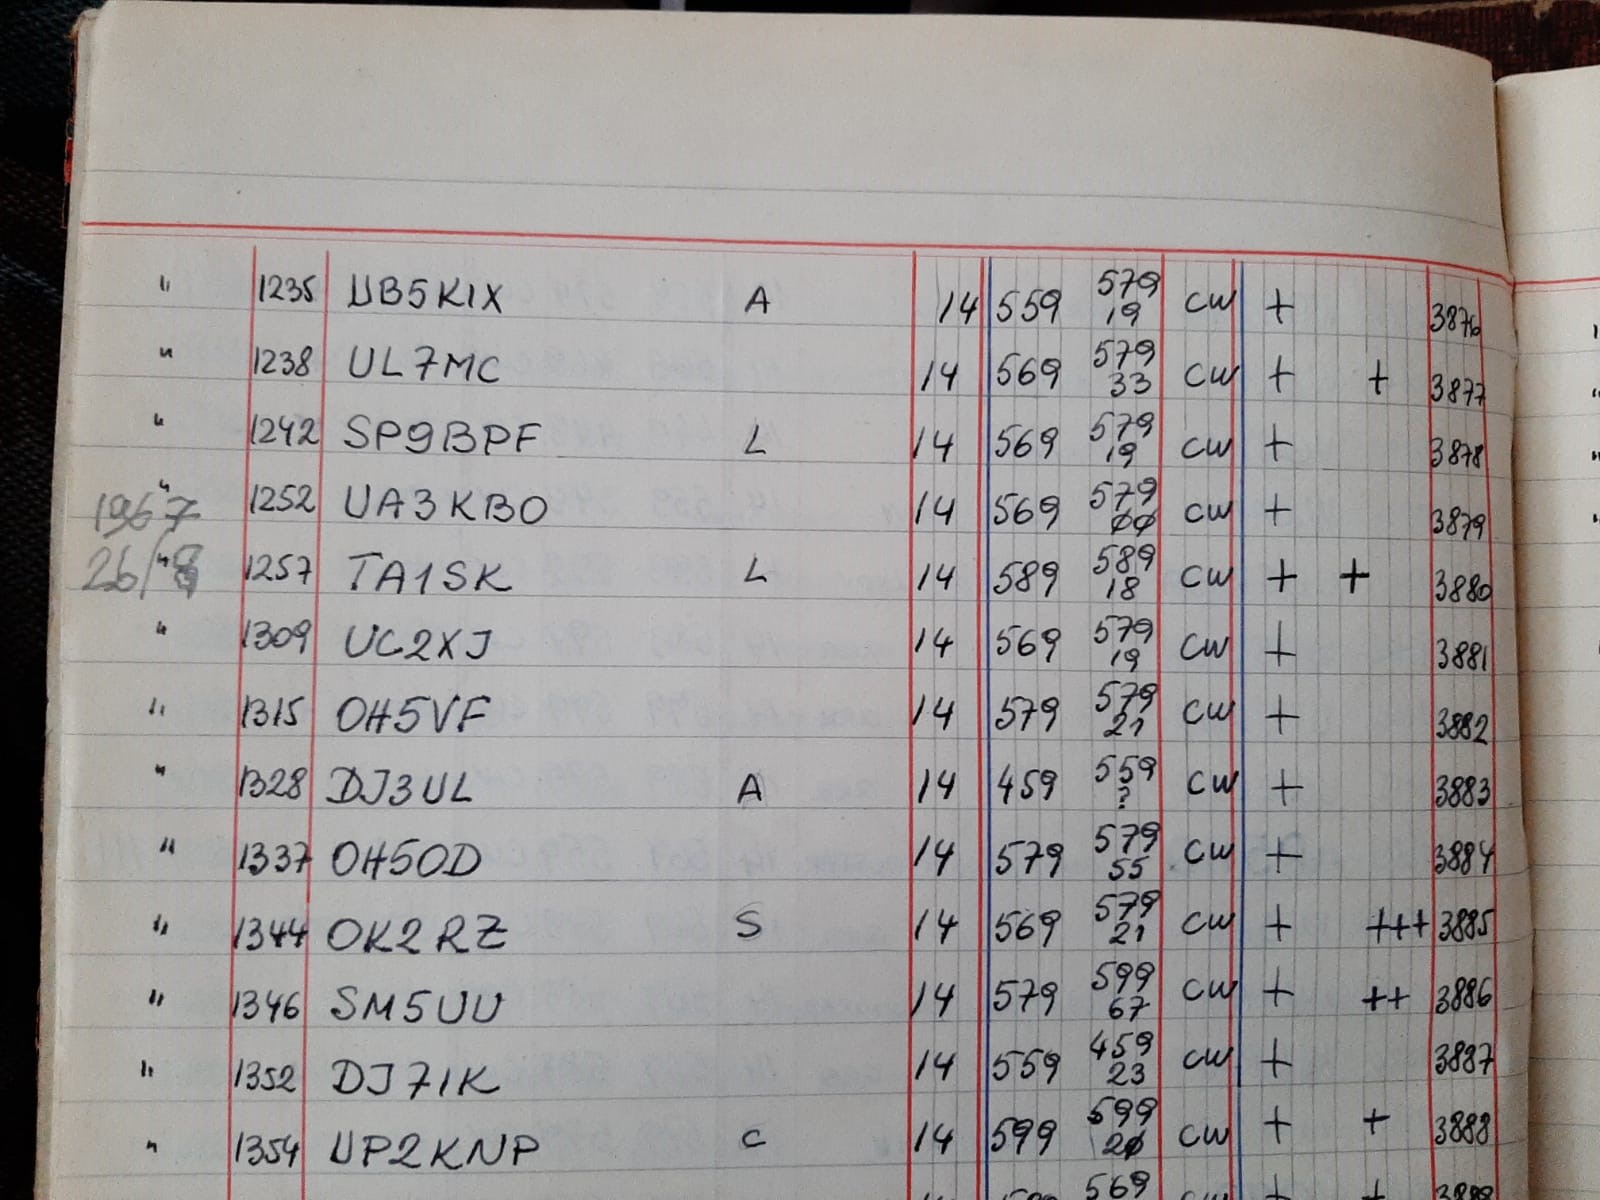 " 1235 UB5KIX A 14 559 579 19 CW + 3876
" 1238 UL7MC 14 569 579 33 CW + + 3877
" 1242 SP9BPF L 14 569 579 19 CW + 3878
" 1252 UA3KBO 14 569 579 00 CW + 3879
1967
26/8 " 1257 TA1SK L 14 589 589 18 CW + + 3880
" 1309 UC2XJ 14 569 579 19 CW + 3881
" 1315 OH5VF 14 579 579 21 CW + 3882
" 1328 DJ3UL A 14 459 559 ? CW + 3883
" 1337 OH5OD 14 579 579 55 CW + 3884
" 1344 OK2RZ S 14 569 579 21 CW + +++ 3885
" 1346 SM5UU 14 579 599 67 CW + ++ 3886
" 1352 DJ7IK 14 559 459 23 CW + 3887
" 1354 UP2KNP C 14 599 599 20 CW + + 3888
569